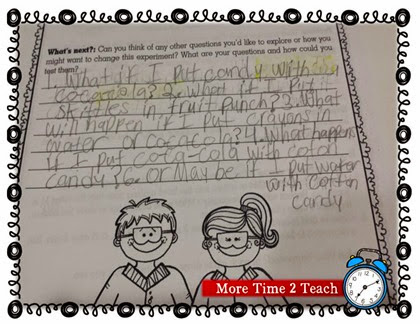 What's next?: Can you think of any other questions you'd like to explore or how you
might want to change this experiment? What are your questions and how could you
test them?
1. What if I put candy with
cocacola? 2. What if I put
skittles in fruit punch? 2. What
will happen if I put crayons in
water or cocacoln? 4. What happens
if I put cota-cola with coton
candy? 6. or Maybe if I put water
with cotton
candy
More Time 2 Teach